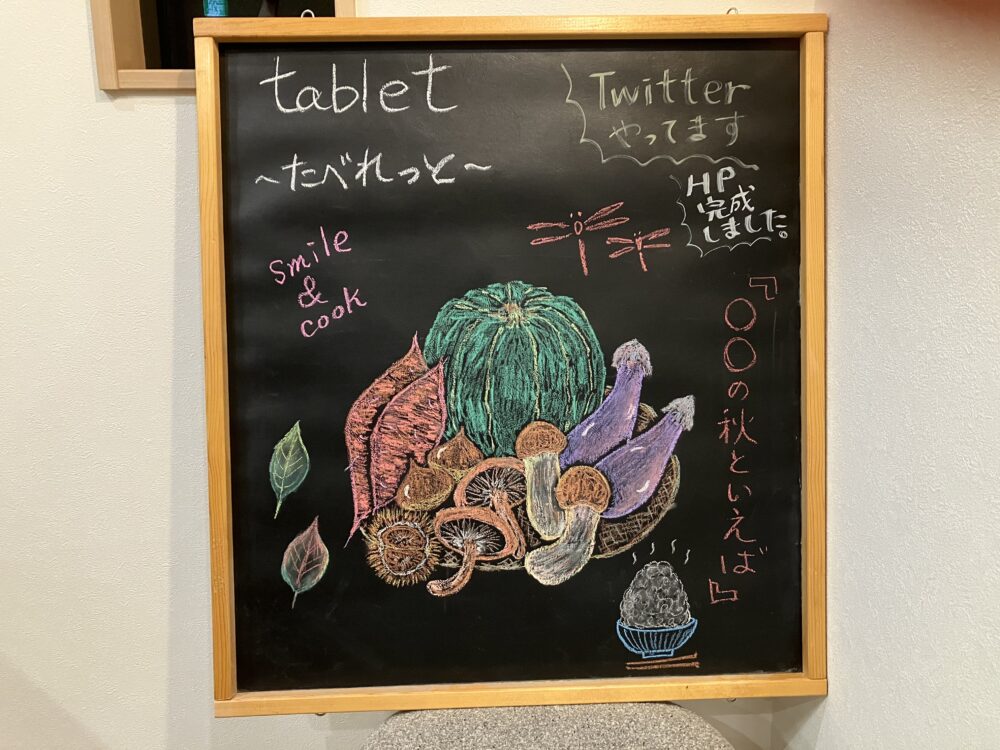 tablet
～たべれっと～
Twitter
やってます
HP
完成
しました。
smile
&
cook
『〇〇の秋といえば』